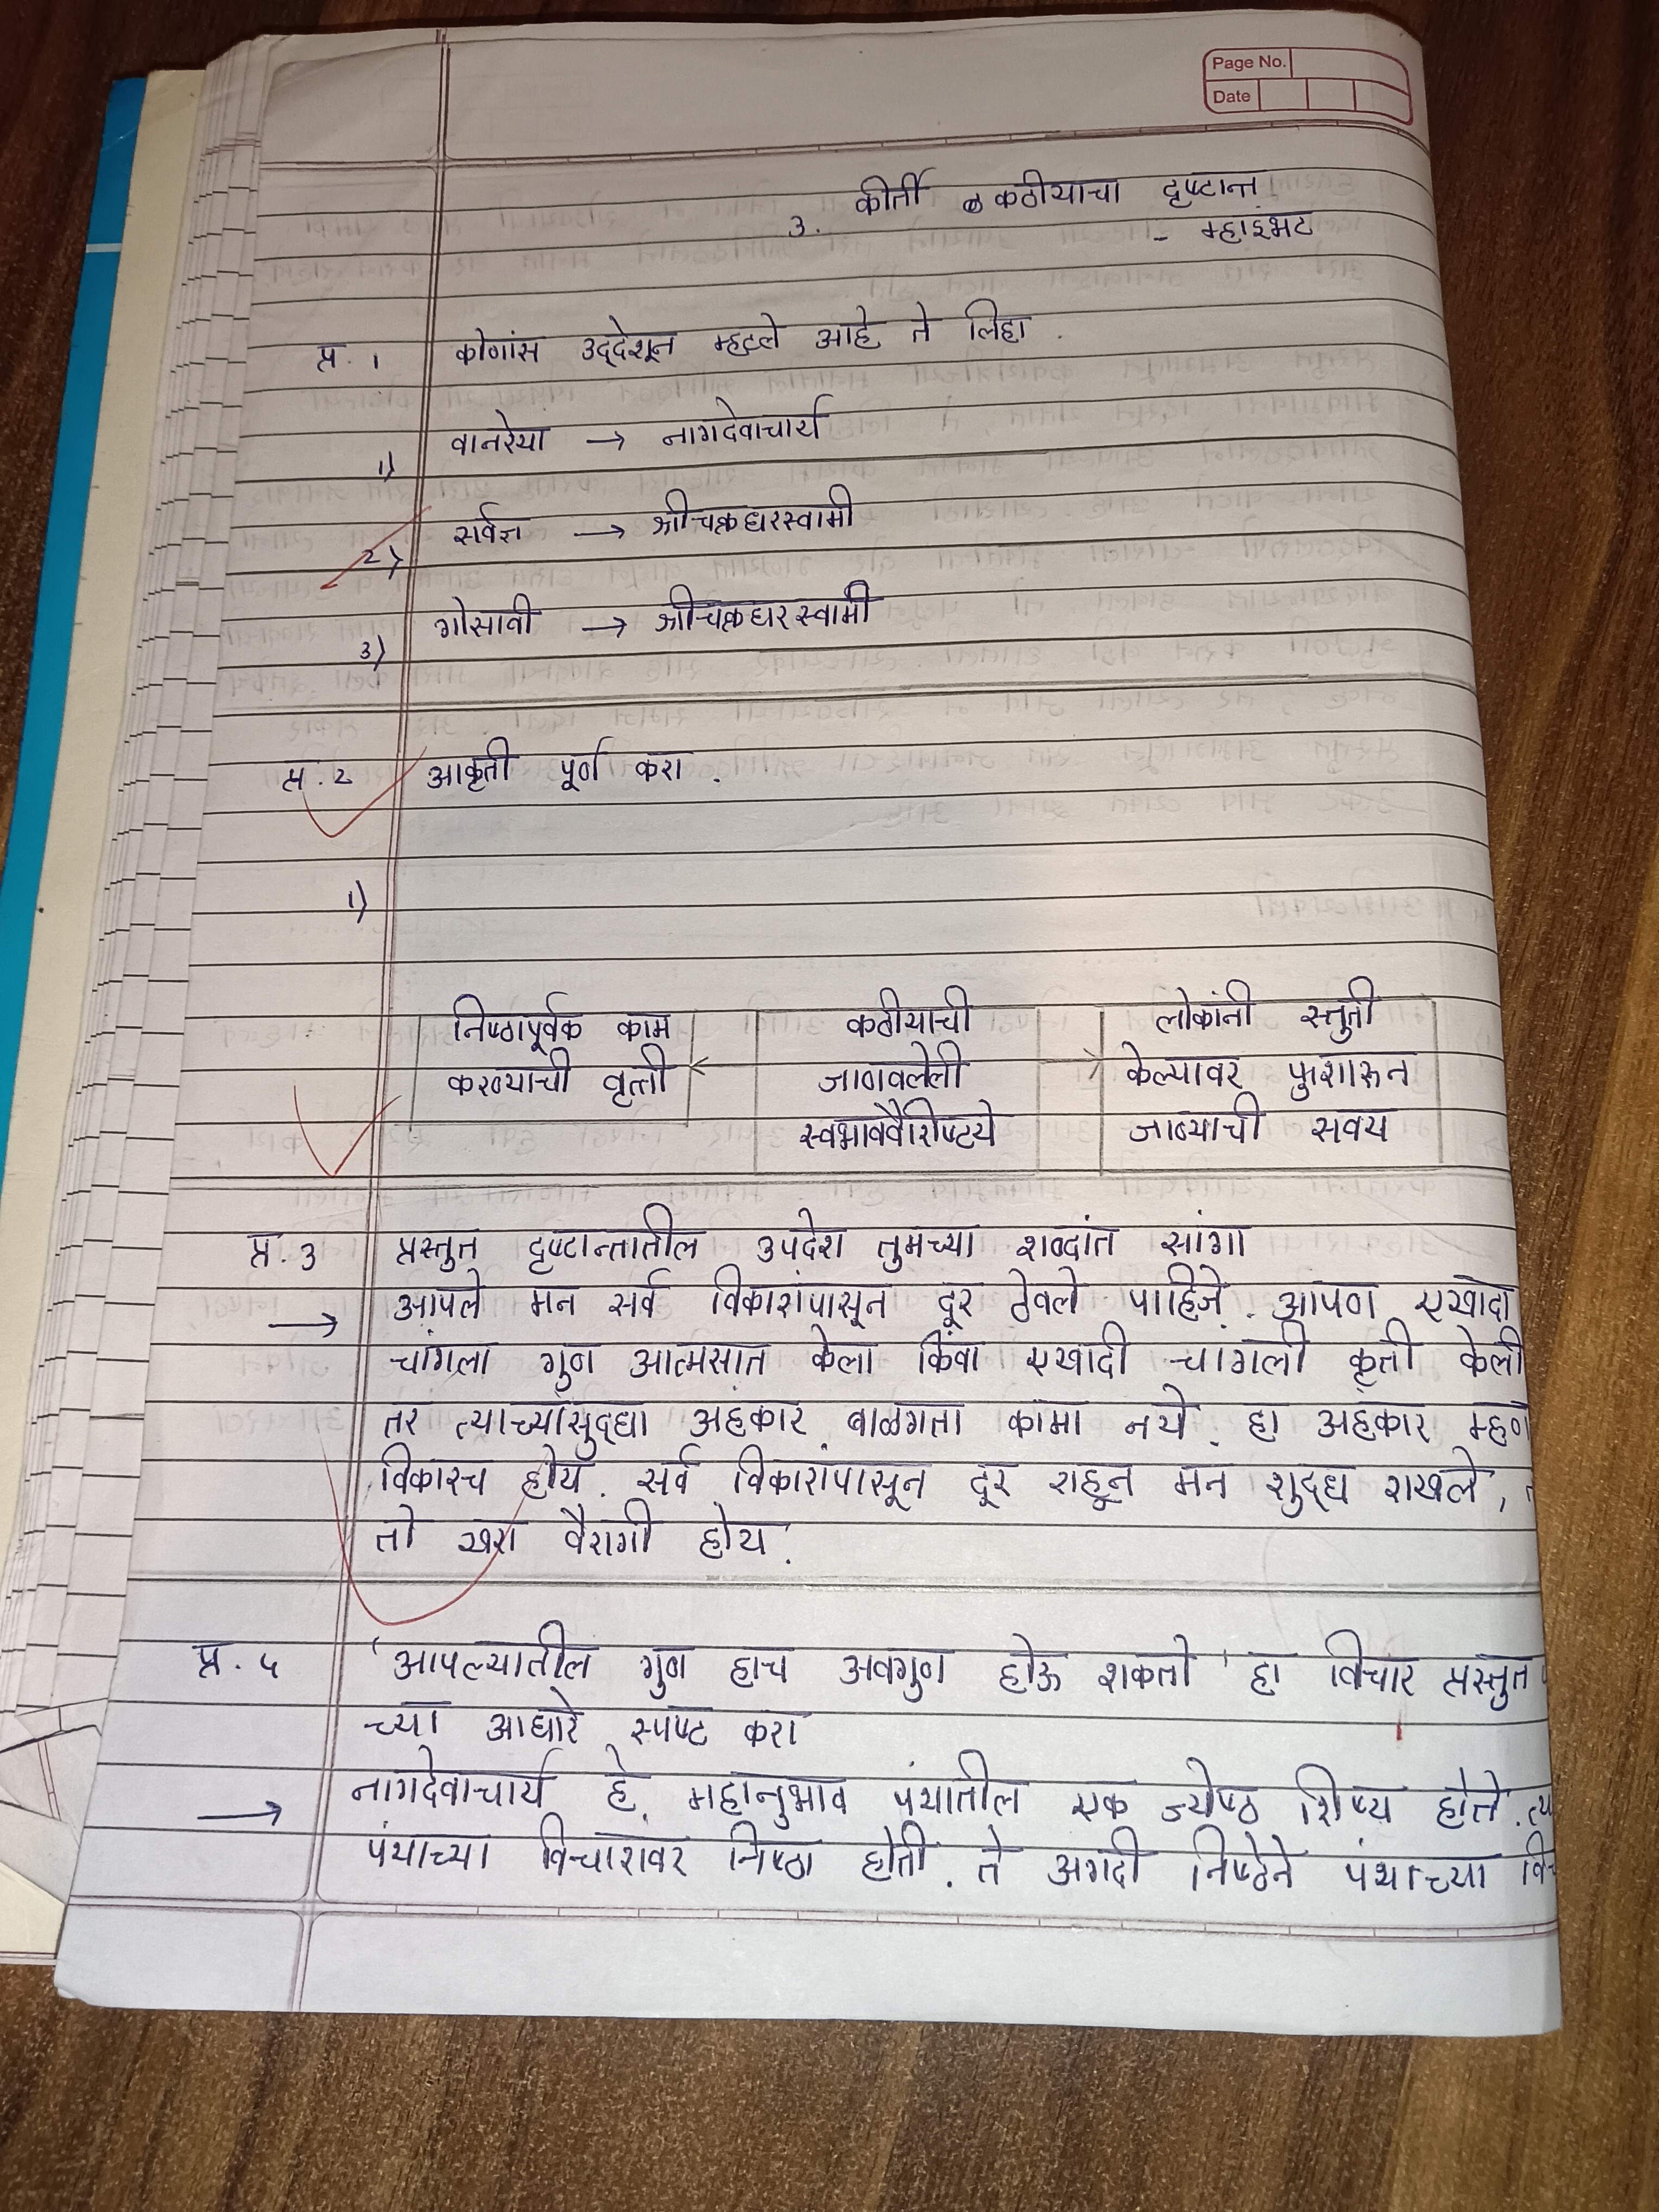 Page No.
Date
3. कीर्ती कठीयाचा दृष्टान्त
- म्हाइंभट
प्र. 1 कोणांस उद्देशून म्हटले आहे ते लिहा .
1) वानरेया → नागदेवाचार्य
2) सर्वज्ञ → श्रीचक्रधरस्वामी
3) गोसावी → श्रीचक्रधरस्वामी
प्र. 2 आकृती पूर्ण करा .
1)
निष्ठापूर्वक काम कठीयाची लोकांनी स्तुती
करण्याची वृत्ती जाणवलेली केल्यावर फुशारून
स्वभाववैशिष्ट्ये जाण्याची सवय
प्र. 3 प्रस्तुत दृष्टान्तातील उपदेश तुमच्या शब्दांत सांगा
→ आपले मन सर्व विकारांपासून दूर ठेवले पाहिजे. आपण एखादा
चांगला गुण आत्मसात केला किंवा एखादी चांगली कृती केली
तर त्याच्यासुद्धा अहंकार बाळगता कामा नये. हा अहंकार म्हण
विकारच होय. सर्व विकारांपासून दूर राहून मन शुद्ध राखले,
तो खरा वैरागी होय.
प्र. 5 'आपल्यातील गुण हाच अवगुण होऊ शकतो' हा विचार प्रस्तुत
च्या आधारे स्पष्ट करा
→ नागदेवाचार्य हे महानुभाव पंथातील एक ज्येष्ठ शिष्य होते. त्य
पंथाच्या विचारावर निष्ठा होती. ते अगदी निष्ठेने पंथाच्या वि